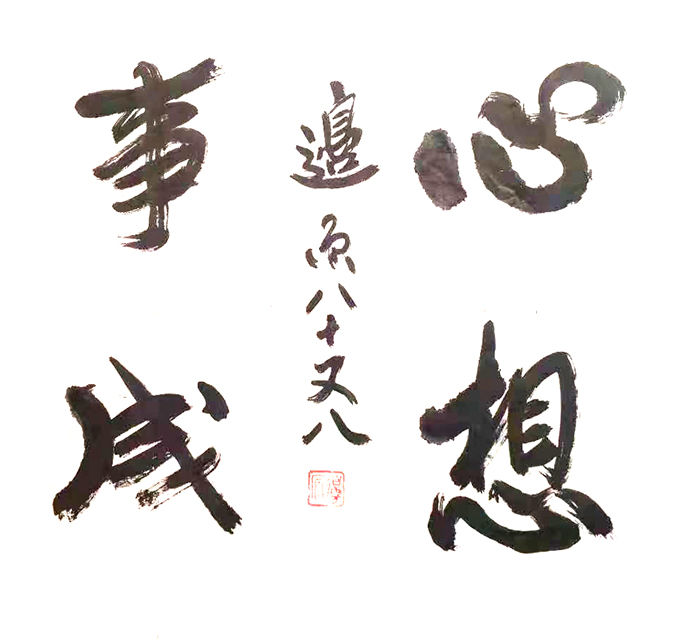 心想
事成
邉原八十又八